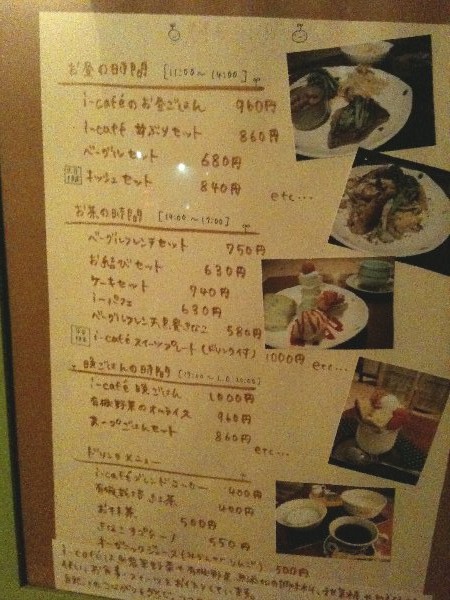 お昼の時間 [11:00〜14:00]
i-caféのお昼ごはん 960円
i-café 丼ぶりセット 860円
ベーグルセット 680円
キッシュセット 840円
etc...
お茶の時間 [14:00〜17:00]
ベーグルフレンチセット 750円
お結びセット 630円
ケーキセット 740円
i-パフェ 630円
580円
i-café スイーツプレート(ドリンク付) 1000円
etc...
晩ごはんの時間
i-café 晩ごはん 1000円
有機野菜のオムライス 960円
スープごはんセット 860円
etc...
ドリンクメニュー
i-caféブレンドコーヒー 400円
有機栽培 400円
お抹茶 500円
きなこカプチーノ 550円
オーガニックジュース(みかんorりんご) 500円